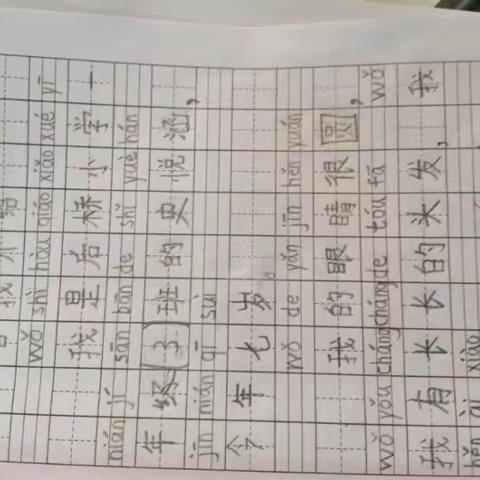 wǒ shì hòu qiáo xiǎo xué yī
我是后桥小学一
nián jí sān bān de shǐ yuè hán
年级(3)班的史悦涵,
jīn nián qī suì
今年七岁。
wǒ de yǎn jīn hěn yuán
我的眼睛很圆,
wǒ yǒu cháng cháng de tóu fā wǒ
我有长长的头发,我
hěn ài xiào